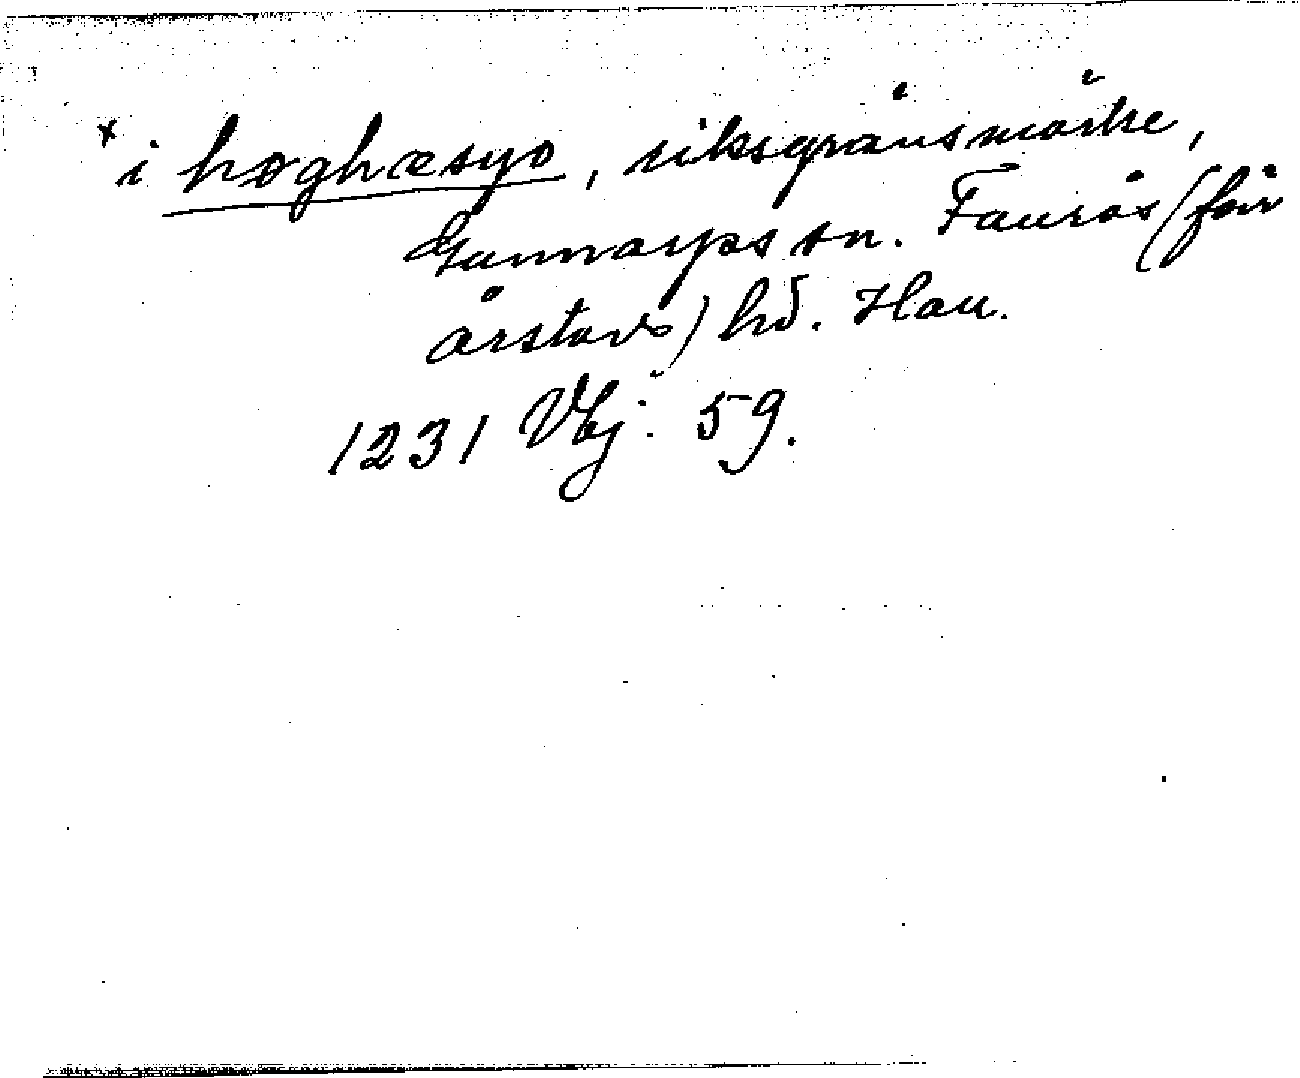 × i høghæsyo, riksgränsmärke,
Gunnarps sn. Faurås (förr
årstads) hd. Hall.
1231 Vbj: 59.